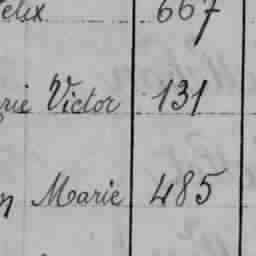 elix 667
rie Victor 131
n Marie 485